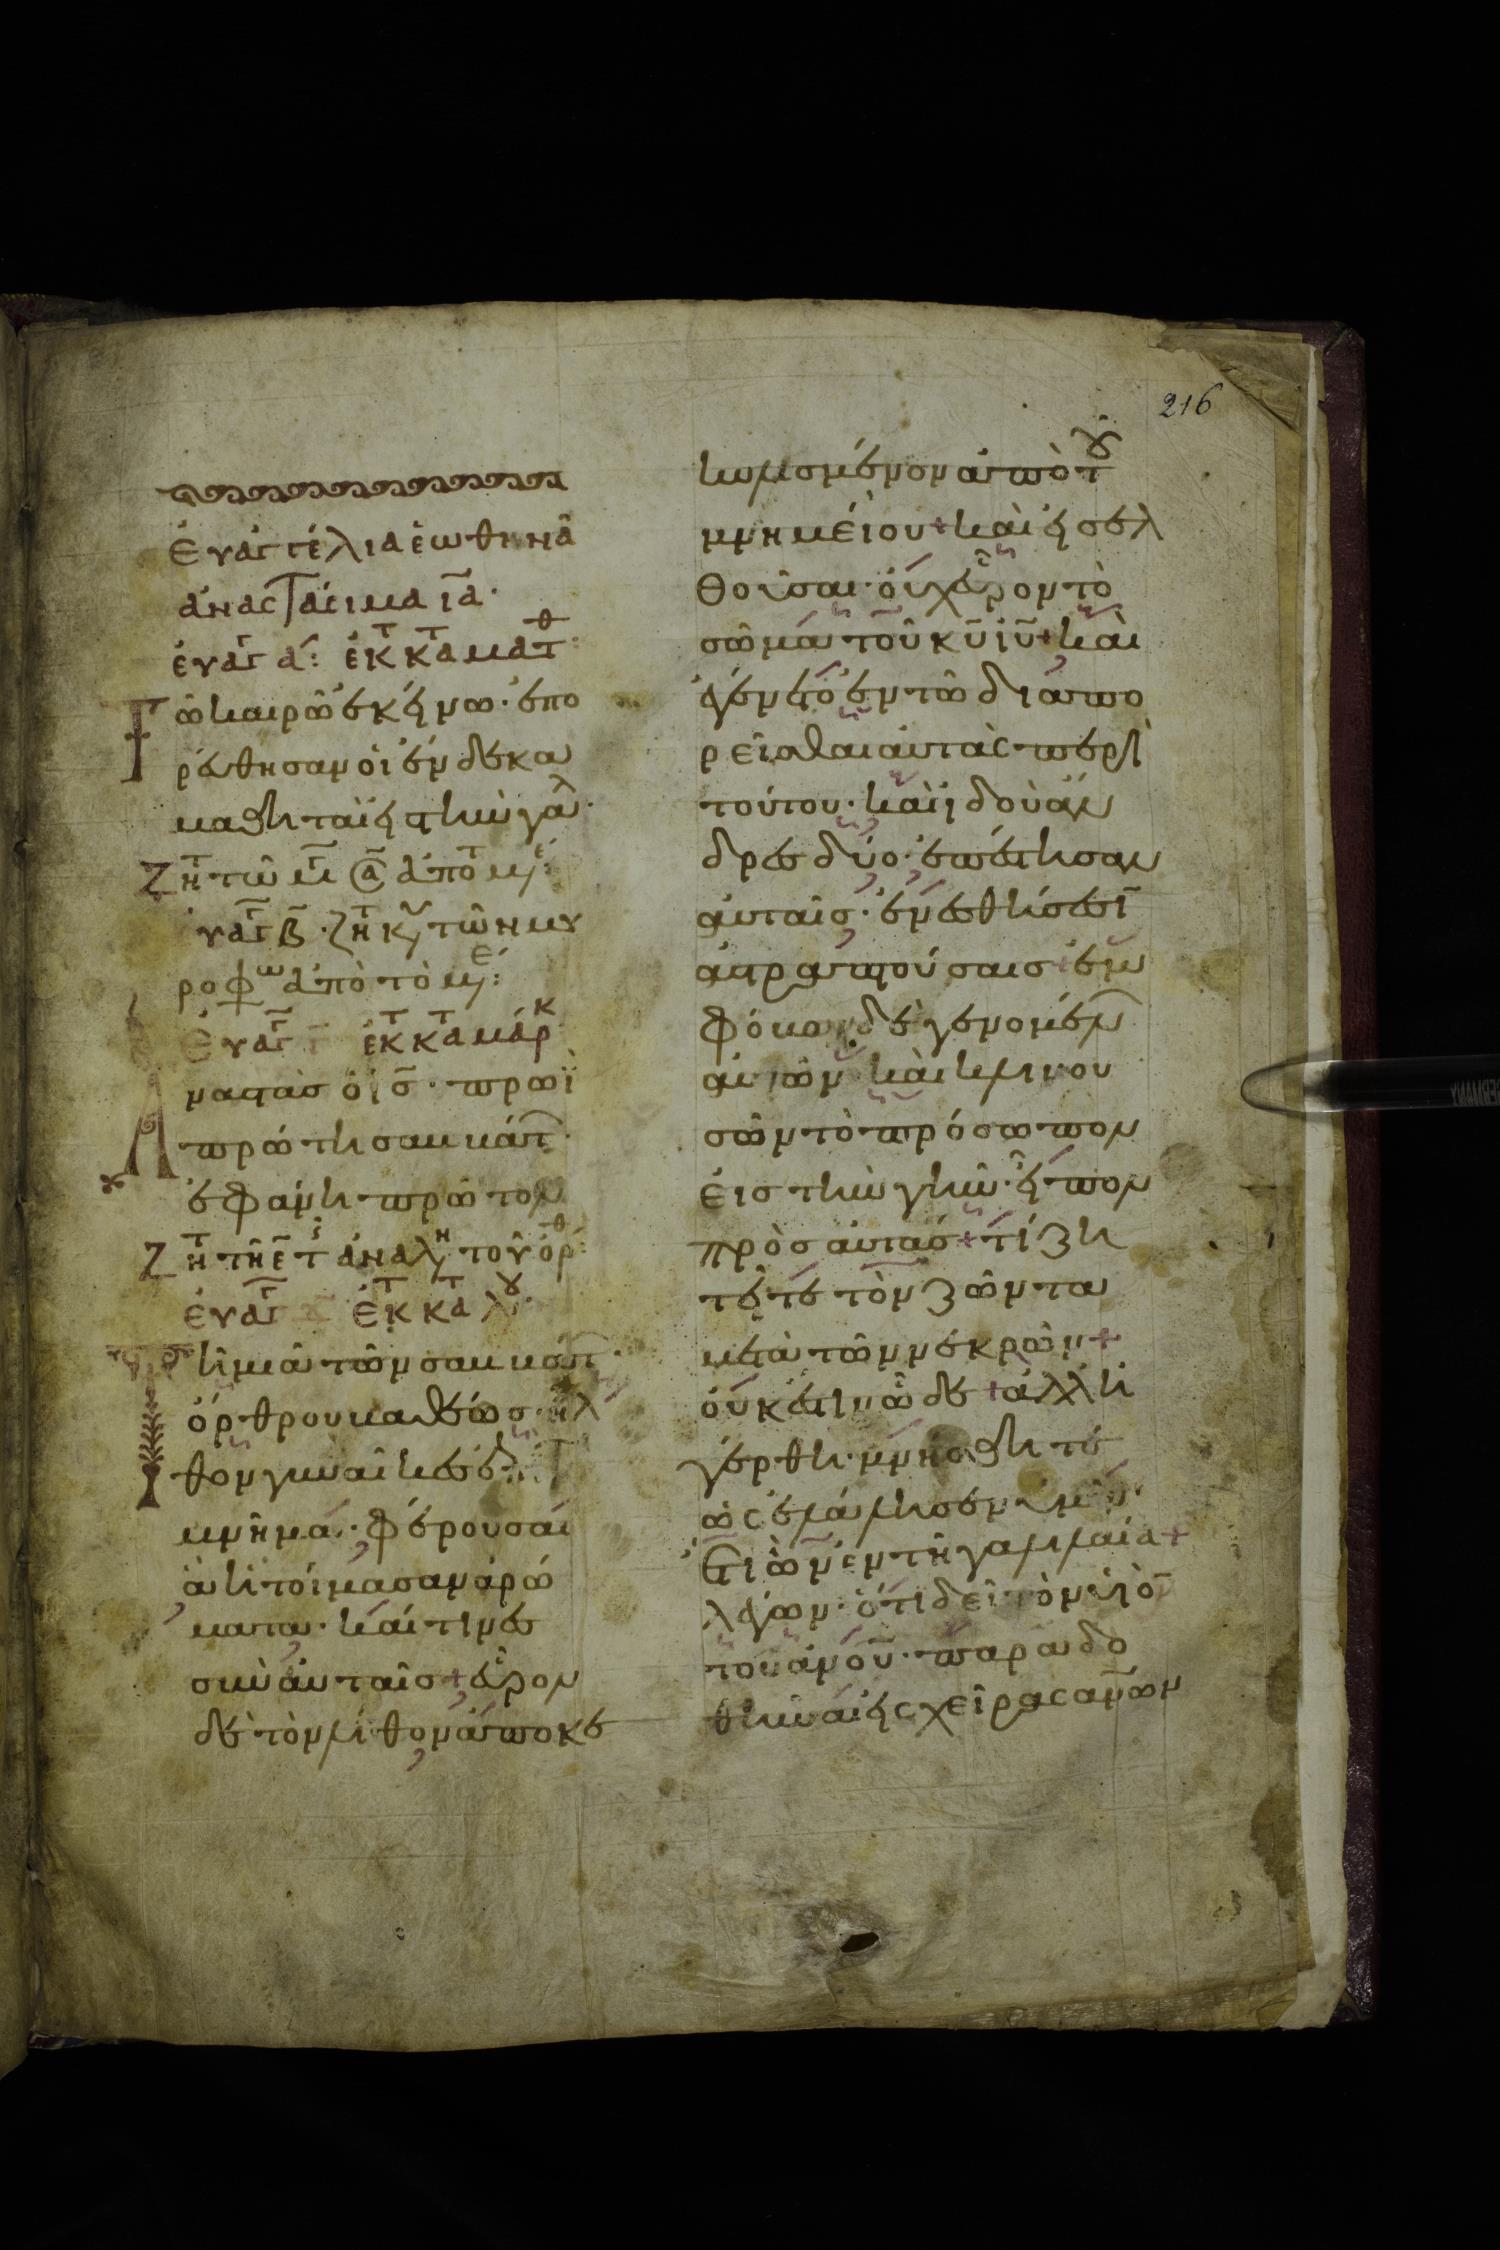 216
ἐυαγγέλια ἑωθηνὰ
ἀναστάσιμα ια·
ἐυαγ α: ἐκ τ κατα ματθ:
Τῶ καιρῶ ἐκείνω· ἐπο
ρέυθησαν ὁι ἕνδεκα
μαθηταὶ εις την γαλ·
ζητ
ἐυαγ β· ζητ κυ τῶν μυ
ροφω ἀπὸ τὸ
ἐυαγ ἐκ τ κατα μάρκ
Αναστὰσ ὁ ισ· πρωὶ
πρώτη σαββάτ·
ἐφάνη πρῶτον
ζητ τῆ ε τ ἀναλη τοῦ ὄρθ:
ἐυαγ ἐκ τ κατα λου·
Τῆ μιᾶ τῶν σαββάτ·
ὄρθρου βαθέωσ· ἦλ
θον γυναῖκεσ
μνῆμα· φέρουσαι
ἁ ἡτοίμασαν ἀρώ
ματα· καί τινεσ
σὺν ἀυταῖσ + εὗρον
δὲ τὸν λίθον ἀποκε
κυλισμένον ἀπὸ τοῦ
μνημείου + καὶ εισελ
θοῦσαι· ὀυχ εὗρον τὸ
σῶμα τοῦ κυ ιυ + καὶ
ἐγένετο ἐν τῶ διαπο
ρεῖσθαι ἀυτὰς περὶ
τούτου· καὶ ἰδοὺ ἄν
δρεσ δύο· ἐπέστησαν
ἀυταῖσ· ἐν ἐσθήσεσι
ἀστραπτούσαισ + ἐμ
φόβων δὲ γενομέν
ἀυτῶν καὶ κλινου
σῶν τὸ πρόσωπον
ἐισ τὴν γῆν· εἶπον
πρὸσ ἀυτάσ + τί ζη
τεῖτε τὸν ζῶντα
μετὰ τῶν νεκρῶν +
ὀυκ ἔστιν ὧδε + ἀλλ ἠ
γέρθη· μνήσθητε
ὡς ἐλάλησεν ὑμῖν·
ἔτι ὢν ἐν τῆ γαλιλαία +
λέγων· ὅτι δεῖ τὸν υἱὸν
τοῦ ανου· παραδο
θῆναι εις χεῖρας ανων